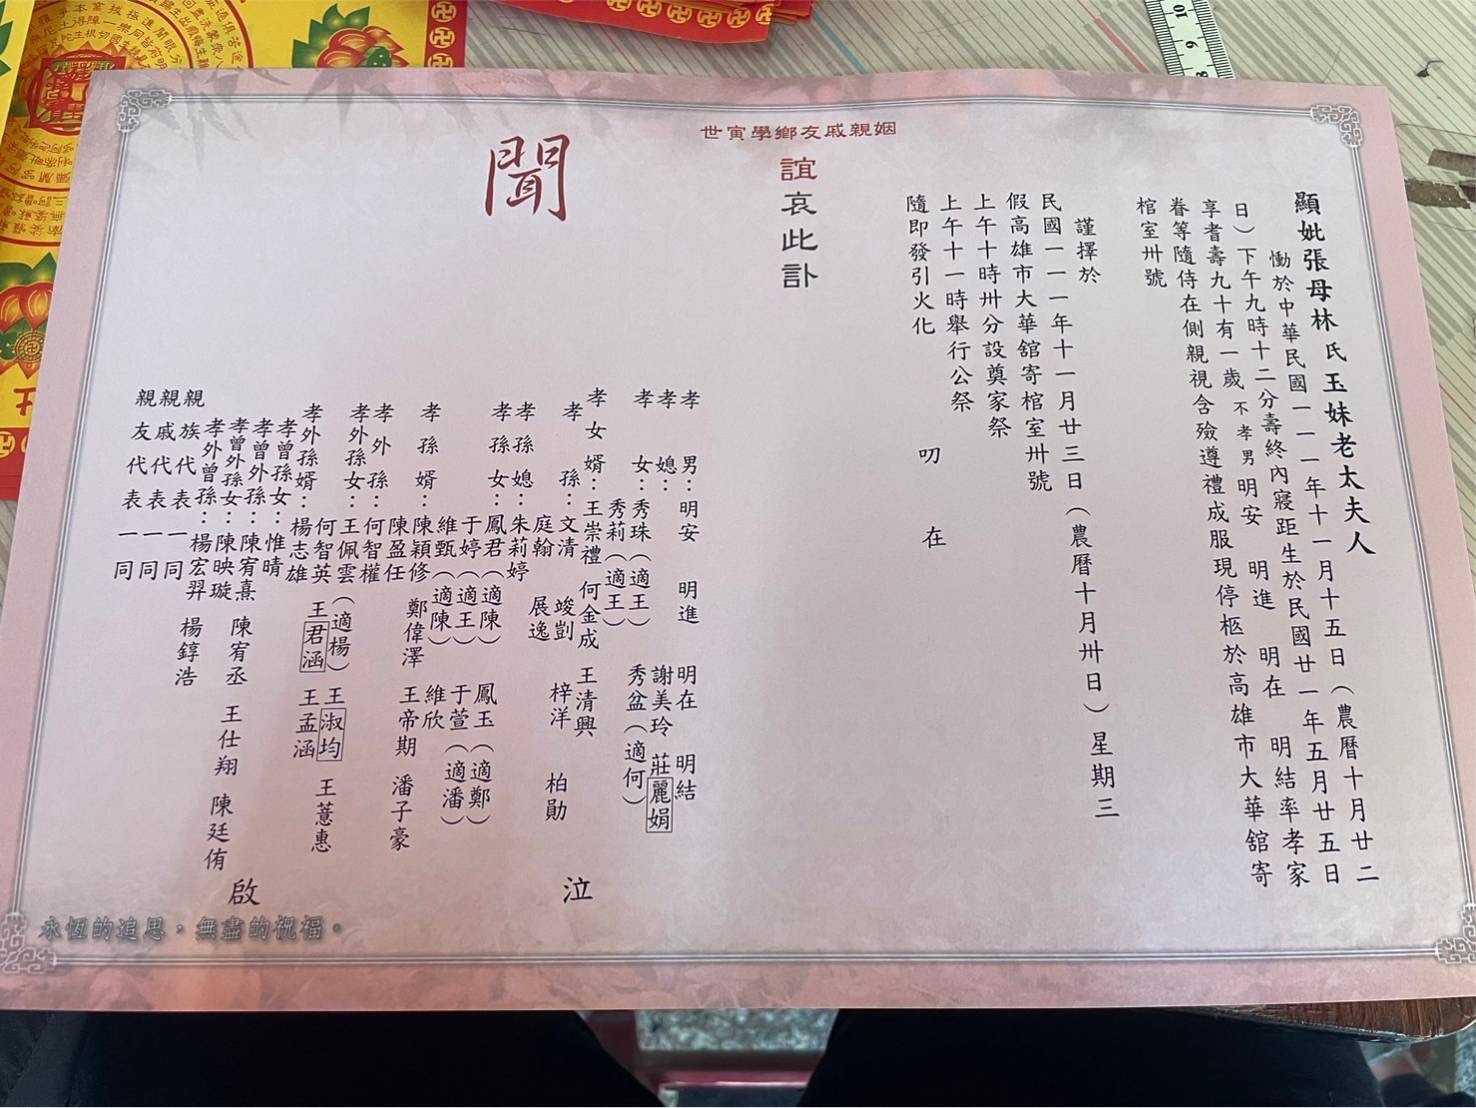 顯妣張母林氏玉妹老太夫人
慟於中華民國一一一年十一月十五日（農曆十月廿二
日）下午九時十二分壽終內寢距生於民國廿一年五月廿五日
享耆壽九十有一歲不孝男明安 明進 明在 明結率孝家
眷等隨侍在側親視含殮遵禮成服現停柩於高雄市大華舘寄
棺室卅號
謹擇於
民國一一一年十一月廿三日（農曆十月卅日）星期三
假高雄市大華舘寄棺室卅號
上午十時卅分設奠家祭
上午十一時舉行公祭
隨即發引火化
叨在
姻親戚友鄉學寅世
誼哀此訃
聞
孝男：明安 明進 明在 明結
孝媳： 謝美玲 莊麗娟
孝女：秀珠（適王） 秀盆（適何）
秀莉（適王）
孝女婿：王崇禮 何金成 王清興
孝孫：文清 竣剴 梓洋 柏勛
庭翰 展逸
孝孫媳：朱莉婷
孝孫女：鳳君（適陳） 鳳玉（適鄭）
于婷（適王） 于萱（適潘）
維甄（適陳） 維欣
孝孫婿：陳穎修 鄭偉澤 王帝期 潘子豪
陳盈任
孝外孫：何智權
孝外孫女：王佩雲（適楊） 王淑均 王薏惠
何智英 王君涵 王孟涵
孝外孫婿：楊志雄
孝曾孫女：惟晴
孝曾外孫：陳宥熹 陳宥丞 王仕翔 陳廷侑
孝曾外孫女：陳映璇
孝外曾孫：楊宏羿 楊錞浩
親族代表一同
親戚代表一同
親友代表一同
泣
啟
永恆的追思，無盡的祝福。
10
9
8